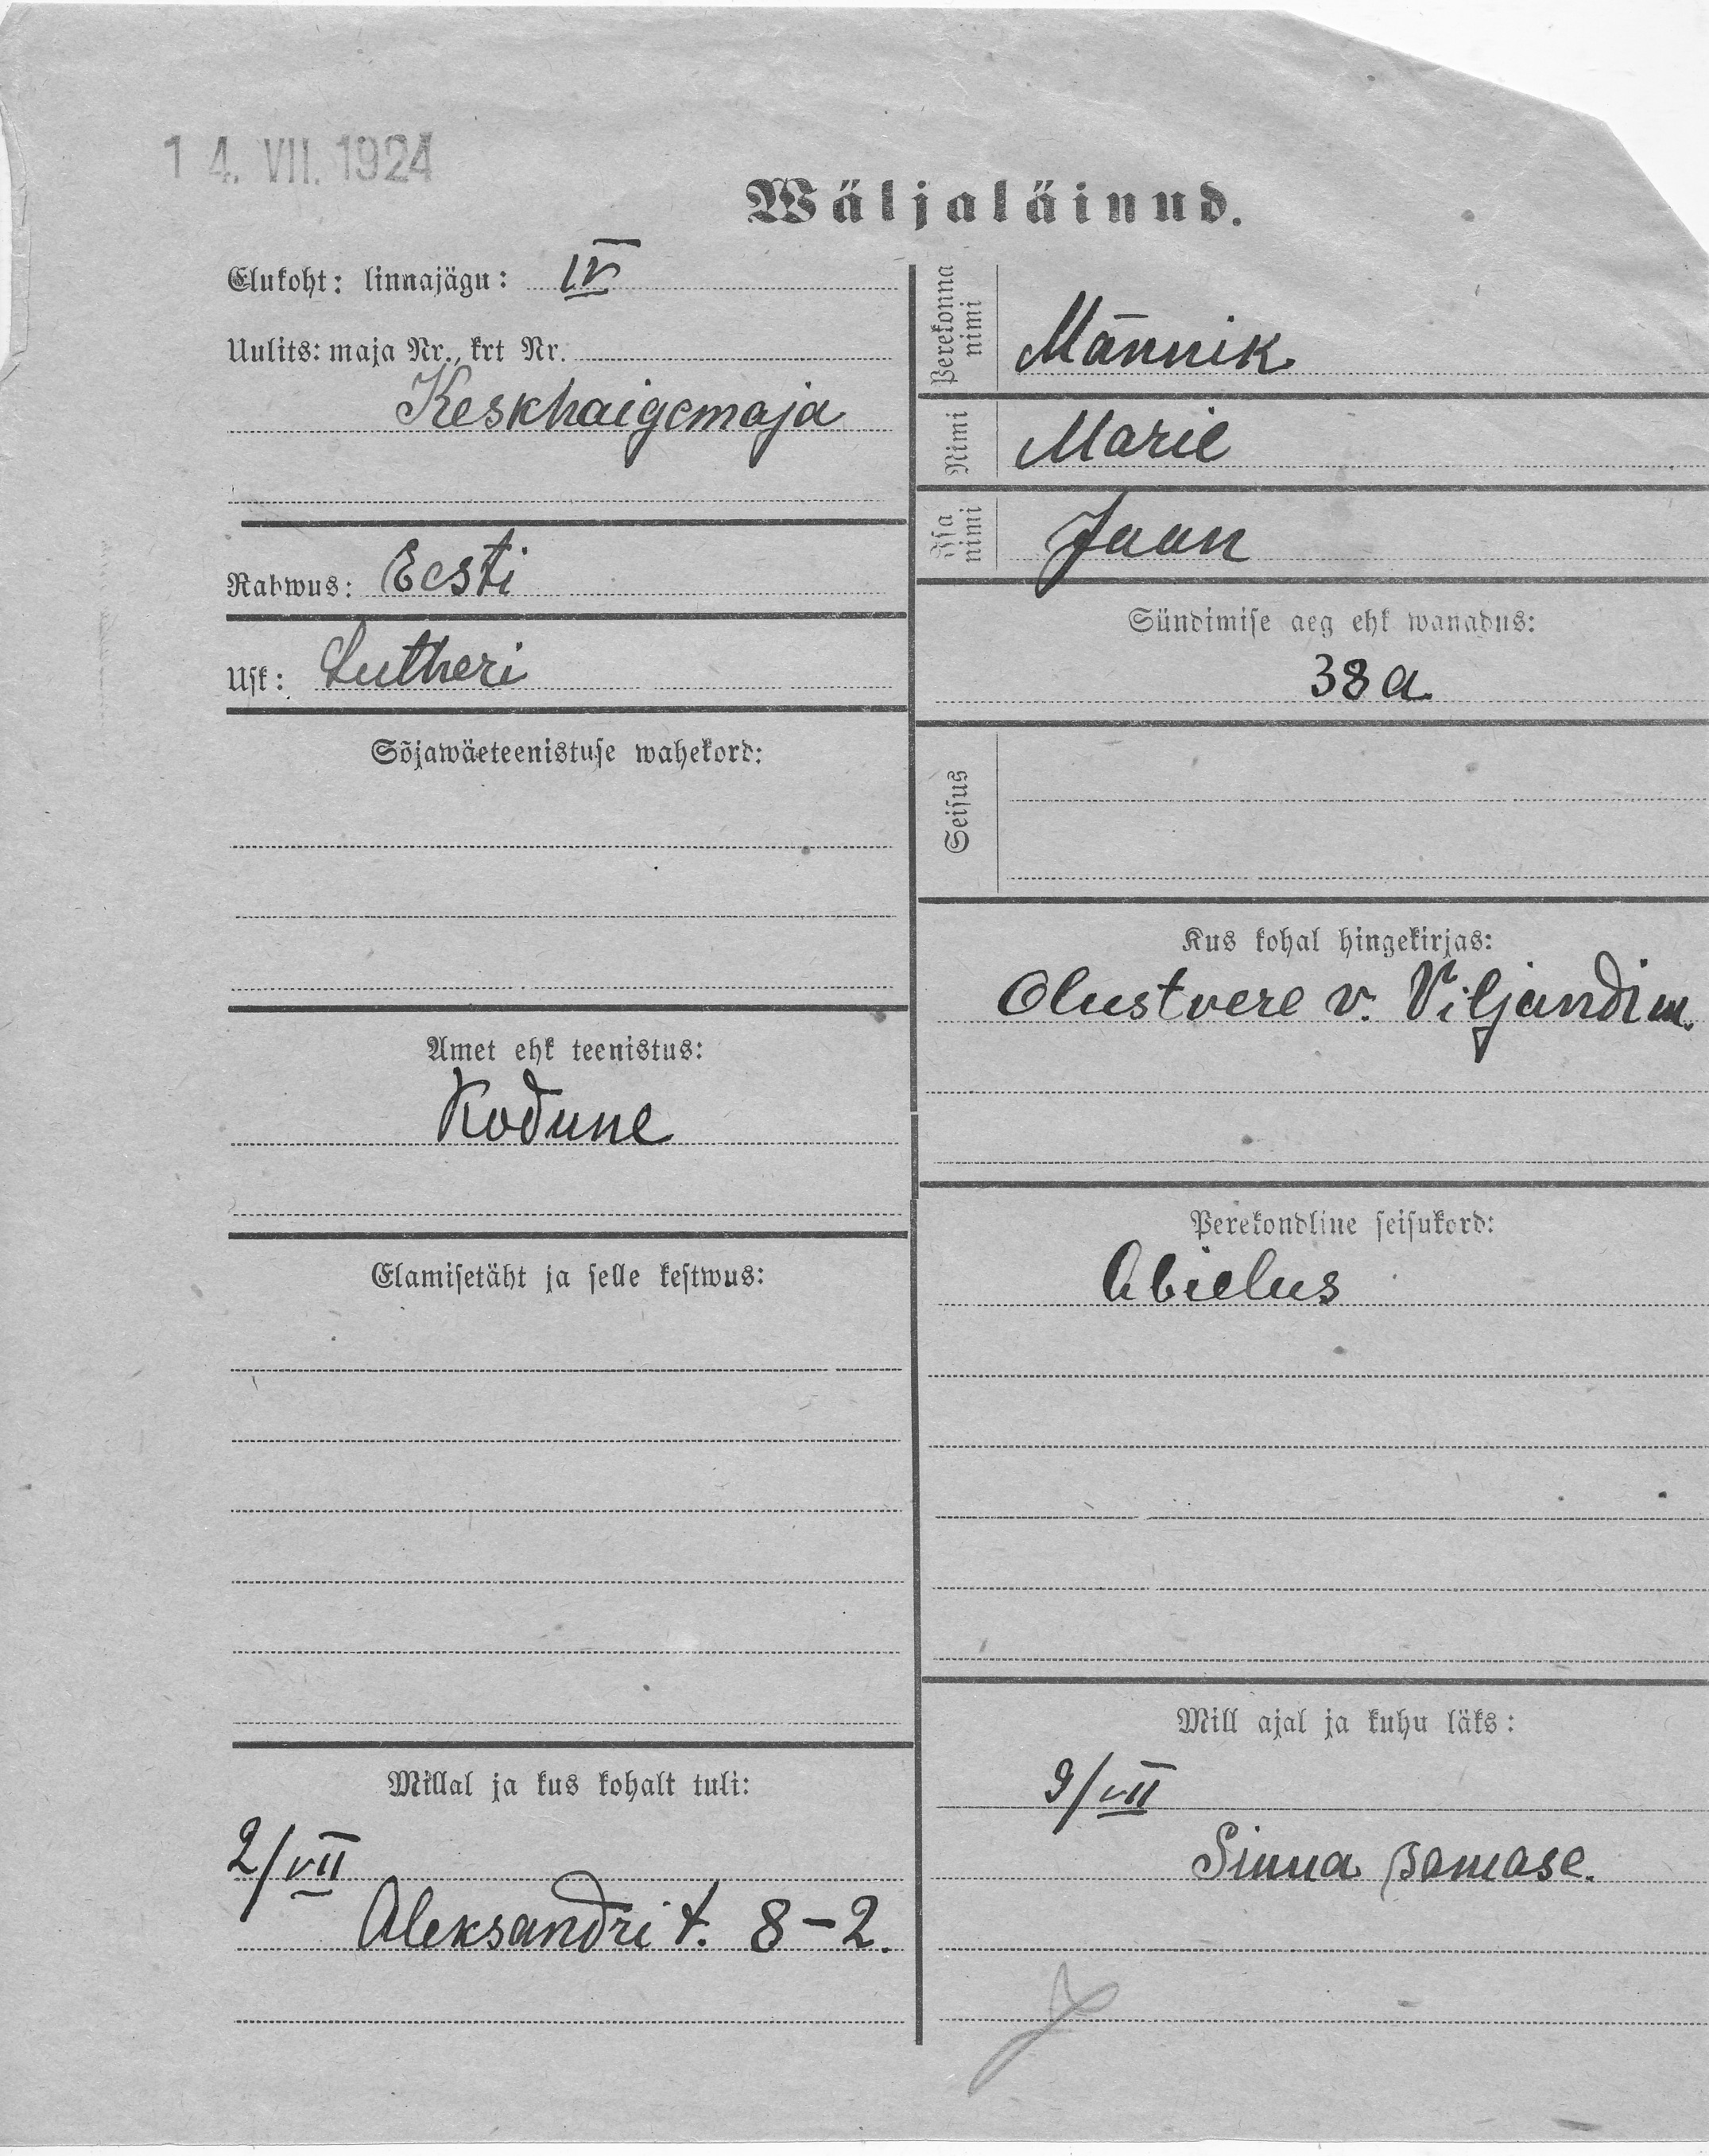 14. VII. 1924
Wäljaläinud.
Elukoht: linnajägu: IV
Uulits: maja Nr., krt Nr.
Keskhaigemaja
Rahwus: Eesti
Usk: Lutheri
Sõjawäeteenistuse wahekord:
Amet ehk teenistus:
Kodune
Elamisetäht ja selle kestwus:
Millal ja kus kohalt tuli:
2/VII
Aleksandri t. 8-2.
Perekonna nimi Männik
Nimi Marie
Isa nimi Jaan
Sündimise aeg ehk wanadus:
38 a.
Seisus
Kus kohal hingekirjas:
Olustvere v. Viljandi m.
Perekondline seisukord:
Abielus
Mill ajal ja kuhu läks:
9/VII
Sinna samase.